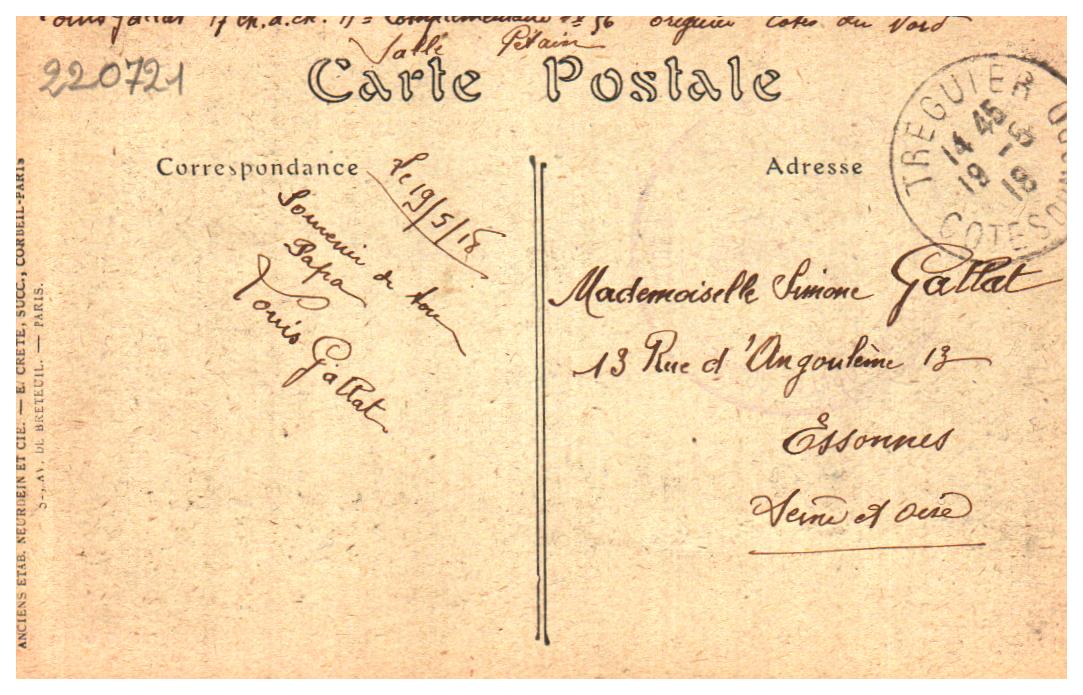 Louis Gallat 17 ch. à ch. Hal Complémentaire No 56 Treguier Cotes du Nord
Salle Pétain
220721
Carte Postale
Correspondance
Adresse
TREGUIER
14 45
19 - 5
18
COTES DU N
Le 19/5/18
Souvenir de ton
Papa
Louis Gallat
Mademoiselle Simone Gallat
13 Rue d'Angoulème 13
Essonnes
Seine et Oise
ANCIENS ETAB. NEURDEIN ET CIE. — E. CRÉTÉ, SUCC., CORBEIL-PARIS
52, AV. DE BRETEUIL. — PARIS.